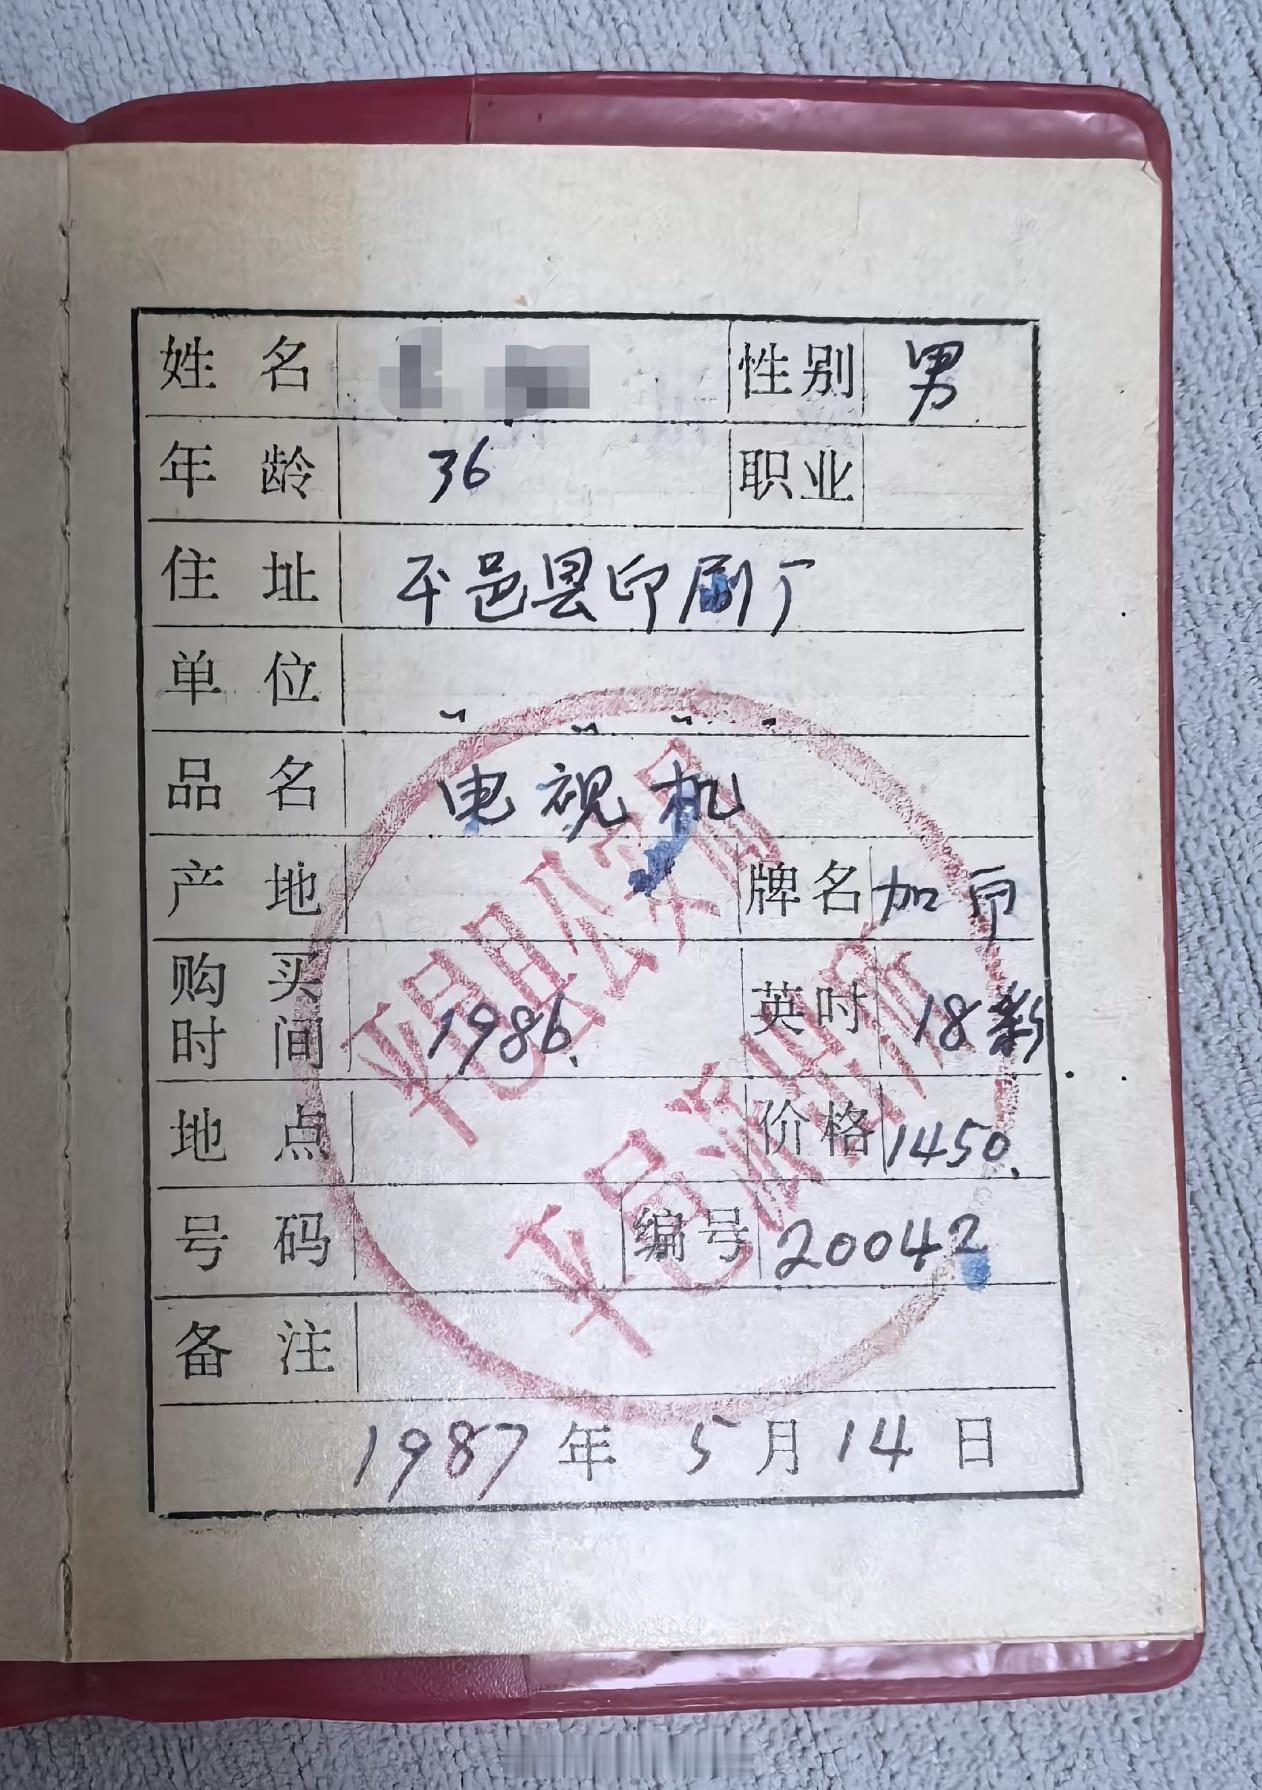 姓名 性别 男
年龄 36 职业
住址 平邑县印刷厂
单位 〃 〃 〃 〃
品名 电视机
产地 牌名 加
购买时间 1986. 英吋 18彩
地点 价格 1450.
号码 编号 20042
备注
1987年5月14日
平邑县公安局
平邑派出所